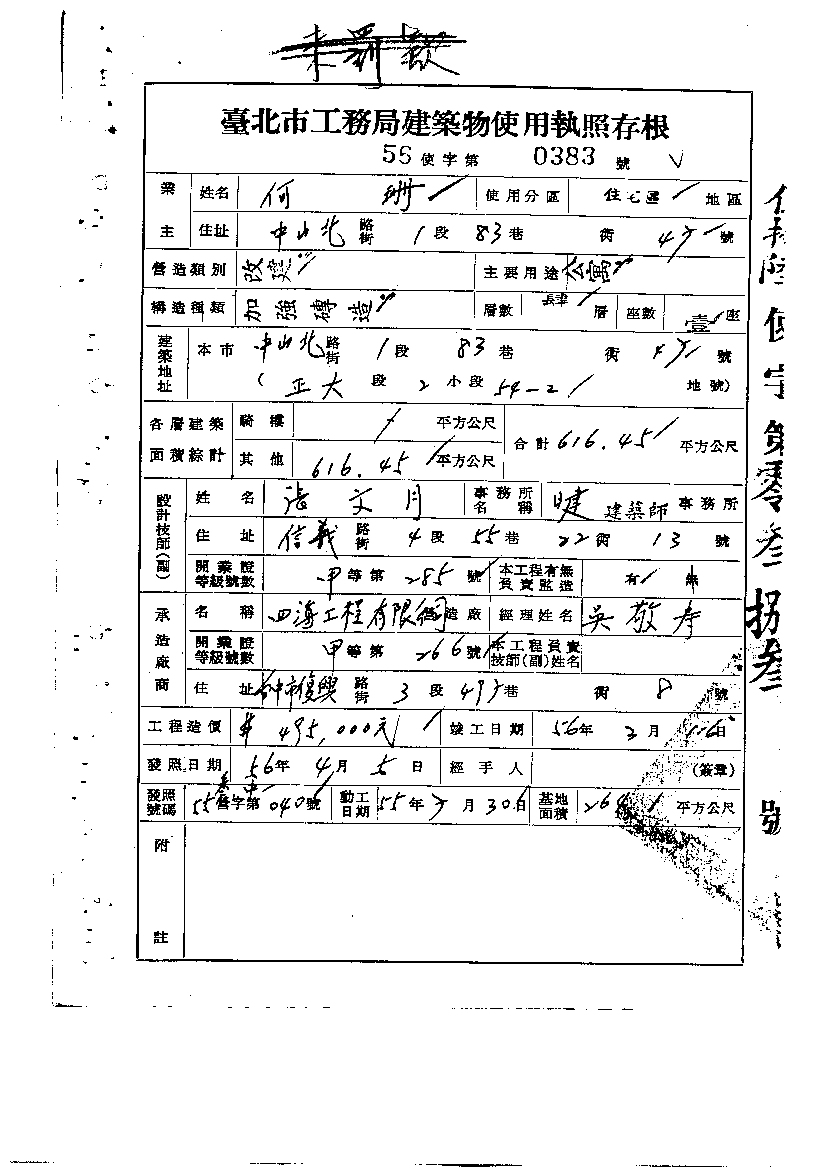 臺北市工務局建築物使用執照存根
56 使字第 0383 號
業主 姓名 何 珊 使用分區 住宅區 地區
住址 中山北 路街 1 段 83 巷 衖 號
營造類別 改建 主要用途 公寓
構造種類 加強磚造 層數 肆 層 座數 壹 座
建築地址 本市 中山北 路街 1 段 83 巷 衖 號
( 正大 段 2 小段 54-2 地號)
各層建築面積綜計 騎樓 平方公尺 合計 616.45 平方公尺
其他 616.45 平方公尺
設計技師(副) 姓名 張文 事務所名稱 建築師 事務所
住址 信義 路街 4 段 55 巷 22 衖 13 號
開業證等級號數 甲 等第 285 號 本工程有無負責監造 有 無
承造廠商 名稱 四海工程有限 營造廠 經理姓名 吳敬
開業證等級號數 甲 等第 266 號 本工程負責技師(副)姓名
住址 中市復興 路街 3 段 巷 衖 8 號
工程造價 495,000元 竣工日期 56年 月 日
發照日期 56年 4月 5日 經手人 (簽章)
發照號碼 55 字第 040 號 動工日期 55年 月 30日 基地面積 平方公尺
附註
使字第零叁捌叁號